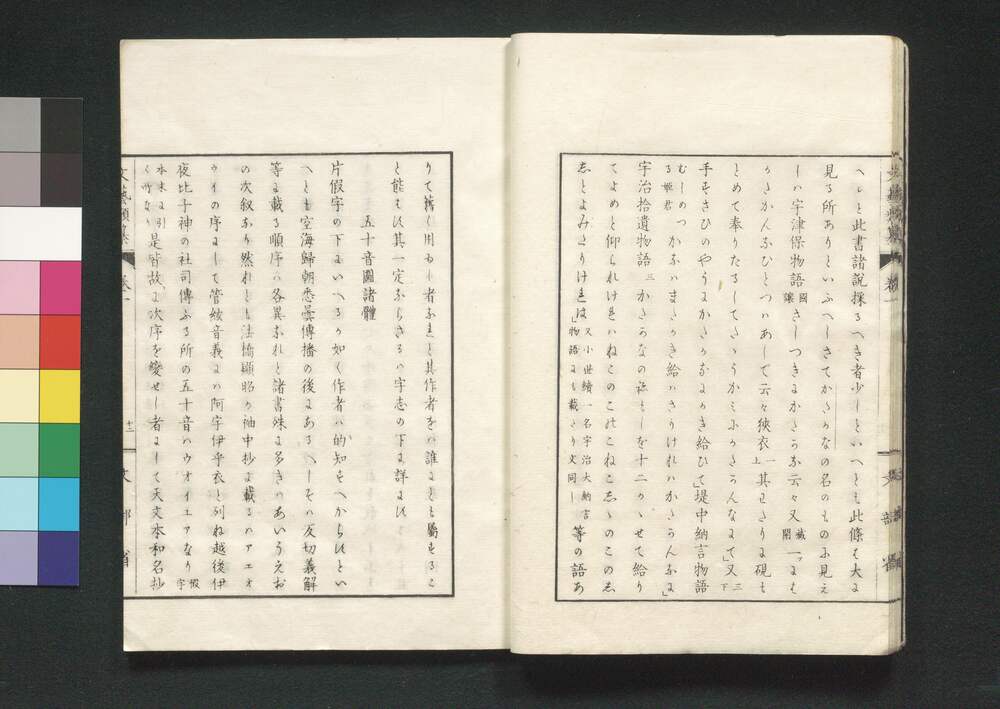 へしと此書諸説採るへき者少しといへとも此條は大に
見る所ありといふへしさてかたかなの名のものに見え
しハ宇津保物語 國讓 さしつきにかたかな云々又 藏開 一ッにも
かたかんなひとつハあして云々狹衣 一上 其わたりに硯も
とめて奉りたるしてたゝうかみにかたかんなにて又 三下
手すさひのやうにかたかなにかき給ひて」堤中納言物語
むしめつる姫君 かなハまたかき給ハさりけれハかたかんなに」
宇治拾遺物語 三 かたかなの祢もしを十二かゝせて給り
てよめと仰られけれハねこのこのこねこしゝのこのこし
しとよみたりけれは 又小世繼一名宇治大納言物語にも載たり文同し 等の語あ
りて舊く用ゐし者なれと其作者をハ誰なりとも屬するこ
と能はす其一定ならさるハ字志の下に詳にす
五十音圖諸體
片假字の下にいへるか如く作者ハ的知すへからすとい
へとも空海歸朝悉曇傳播の後にあるへしそハ反切義解
等に載る順序ハ各異なれと諸書殊に多きハあいうえお
の次叙なり然れとも法橋顯昭か袖中抄に載るハアエオ
ウイの序にして管絃音義にハ阿宇伊乎衣と列ね越後伊
夜比子神の社司傳ふる所の五十音ハウオイエアなり 假字
本末に引く所なり 是皆故に次序を變せし者にして天文本和名抄
文藝類纂 卷一
十二
文部省